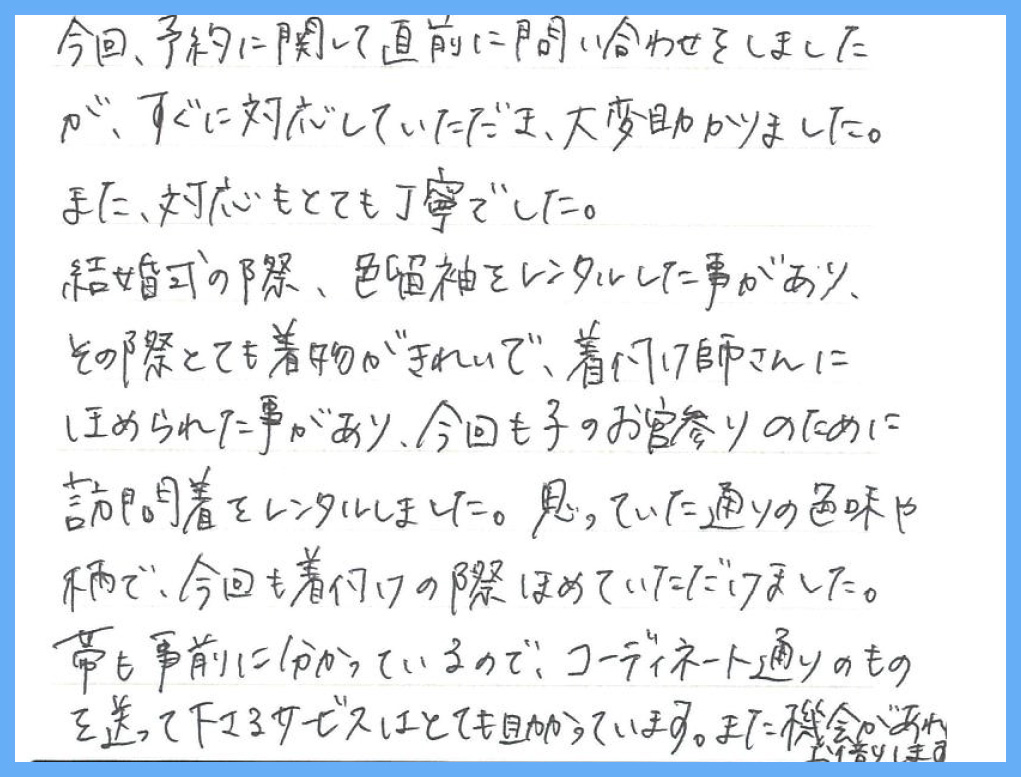 今回、予約に関して直前に問い合わせをしました
が、すぐに対応していただき、大変助かりました。
また、対応もとても丁寧でした。
結婚式の際、色留袖をレンタルした事があり、
その際とても着物がきれいで、着付け師さんに
ほめられた事があり、今回も子のお宮参りのために
訪問着をレンタルしました。思っていた通りの色味や
柄で、今回も着付けの際ほめていただけました。
帯も事前に分かっているので、コーディネート通りのもの
を送って下さるサービスはとても助かっています。また機会があれ
お借りします